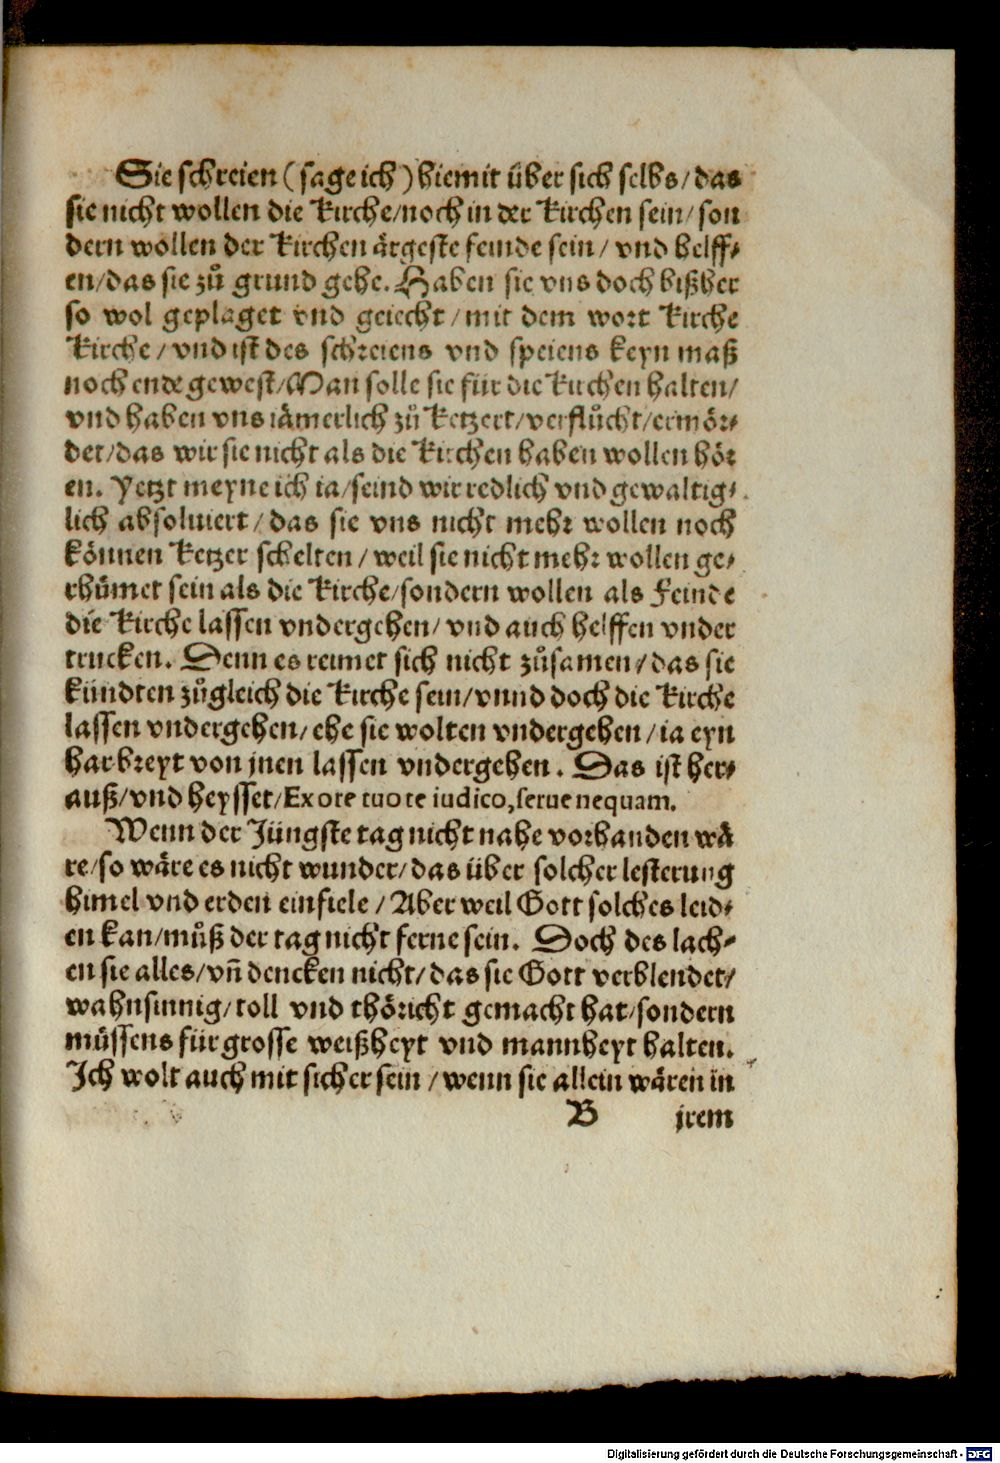 Sie schreien (sage ich) hiemit über sich selbs / das
sie nicht wollen die Kirche / noch in der Kirchen sein / son
dern wollen der Kirchen ärgeste feinde sein / vnd helff⸗
en / das sie zů grund gehe. Haben sie vns doch bißher
so wol geplaget vnd geiecht / mit dem wort Kirche
Kirche / vnd ist des schreiens vnd speiens keyn maß
noch ende gewest / Man solle sie für die Kirchen halten /
vnd haben vns iämerlich zů Ketzert / verflůcht / ermör⸗
det / das wir sie nicht als die Kirchen haben wollen hör
en. Yetzt meyne ich ia / seind wir redlich vnd gewaltig⸗
lich absoluiert / das sie vns nicht mehr wollen noch
können Ketzer schelten / weil sie nicht mehr wollen ge⸗
rhümet sein als die Kirche / sondern wollen als Feinde
die Kirche lassen vndergehen / vnd auch helffen vnder
trucken. Denn es reimet sich nicht zůsamen / das sie
kündten zůgleich die Kirche sein / vnnd doch die Kirche
lassen vndergehen / ehe sie wolten vndergehen / ia eyn
harbreyt von jnen lassen vndergehen. Das ist her⸗
auß / vnd heysset / Ex ore tuo te iudico, serue nequam.
Wenn der Jüngste tag nicht nahe vorhanden wä
re / so wäre es nicht wunder / das über solcher lesterung
himel vnd erden einfiele / Aber weil Gott solches leid⸗
en kan / můß der tag nicht ferne sein. Doch des lach⸗
en sie alles / vn̄ dencken nicht / das sie Gott verblendet /
wahnsinnig / toll vnd thöricht gemacht hat / sondern
müssens für grosse weißheyt vnd mannheyt halten.
Ich wolt auch mit sicher sein / wenn sie allein wären in
B jrem
Digitalisierung gefördert durch die Deutsche Forschungsgemeinschaft - DFG